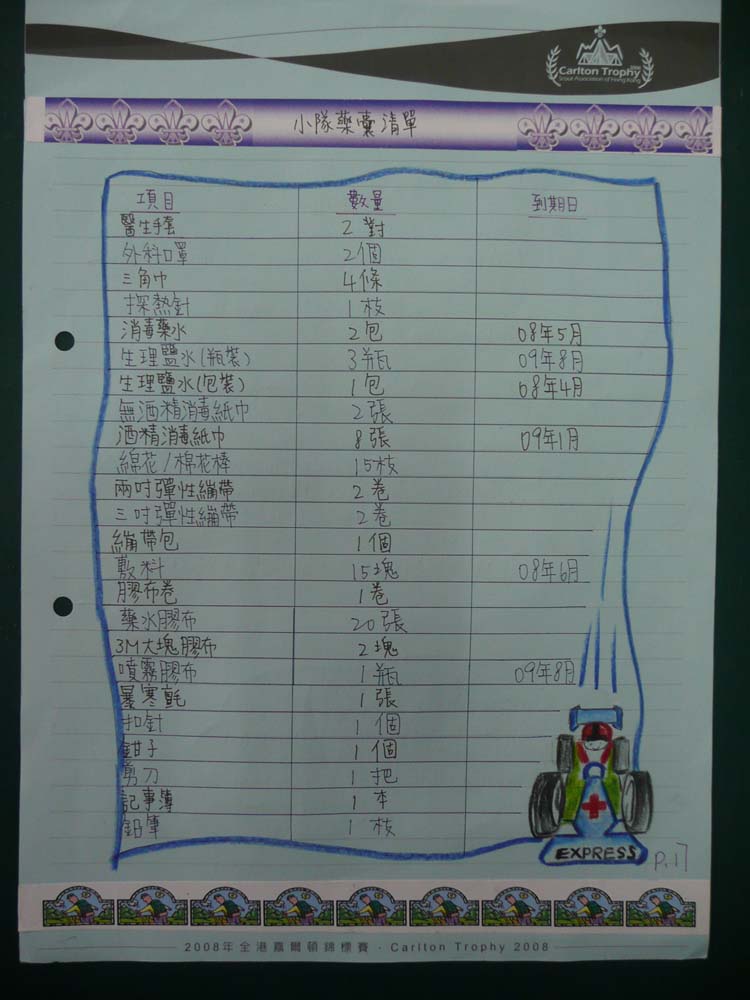 Carlton Trophy
Scout Association of Hong Kong
小隊藥囊清單
項目 數量 到期日
醫生手套 2對
外科口罩 2個
三角巾 4條
探熱針 1枝
消毒藥水 2包 08年5月
生理鹽水(瓶裝) 3瓶 09年8月
生理鹽水(包裝) 1包 08年4月
無酒精消毒紙巾 2張
酒精消毒紙巾 8張 09年1月
綿花/棉花棒 15枝
兩吋彈性繃帶 2卷
三吋彈性繃帶 2卷
繃帶包 1個
敷料 15塊 08年6月
膠布卷 1卷
藥水膠布 20張
3M大塊膠布 2塊
噴霧膠布 1瓶 09年8月
暴寒氈 1張
扣針 1個
鉗子 1個
剪刀 1把
記事簿 1本
鉛筆 1枝
EXPRESS
P.17
2008年全港嘉爾頓錦標賽 · Carlton Trophy 2008